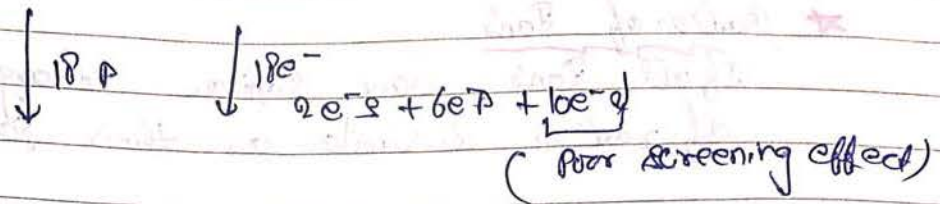 ↓ 18 p ↓ 18e⁻
2e⁻s + 6e⁻p + 10e⁻d
( Poor screening effect)